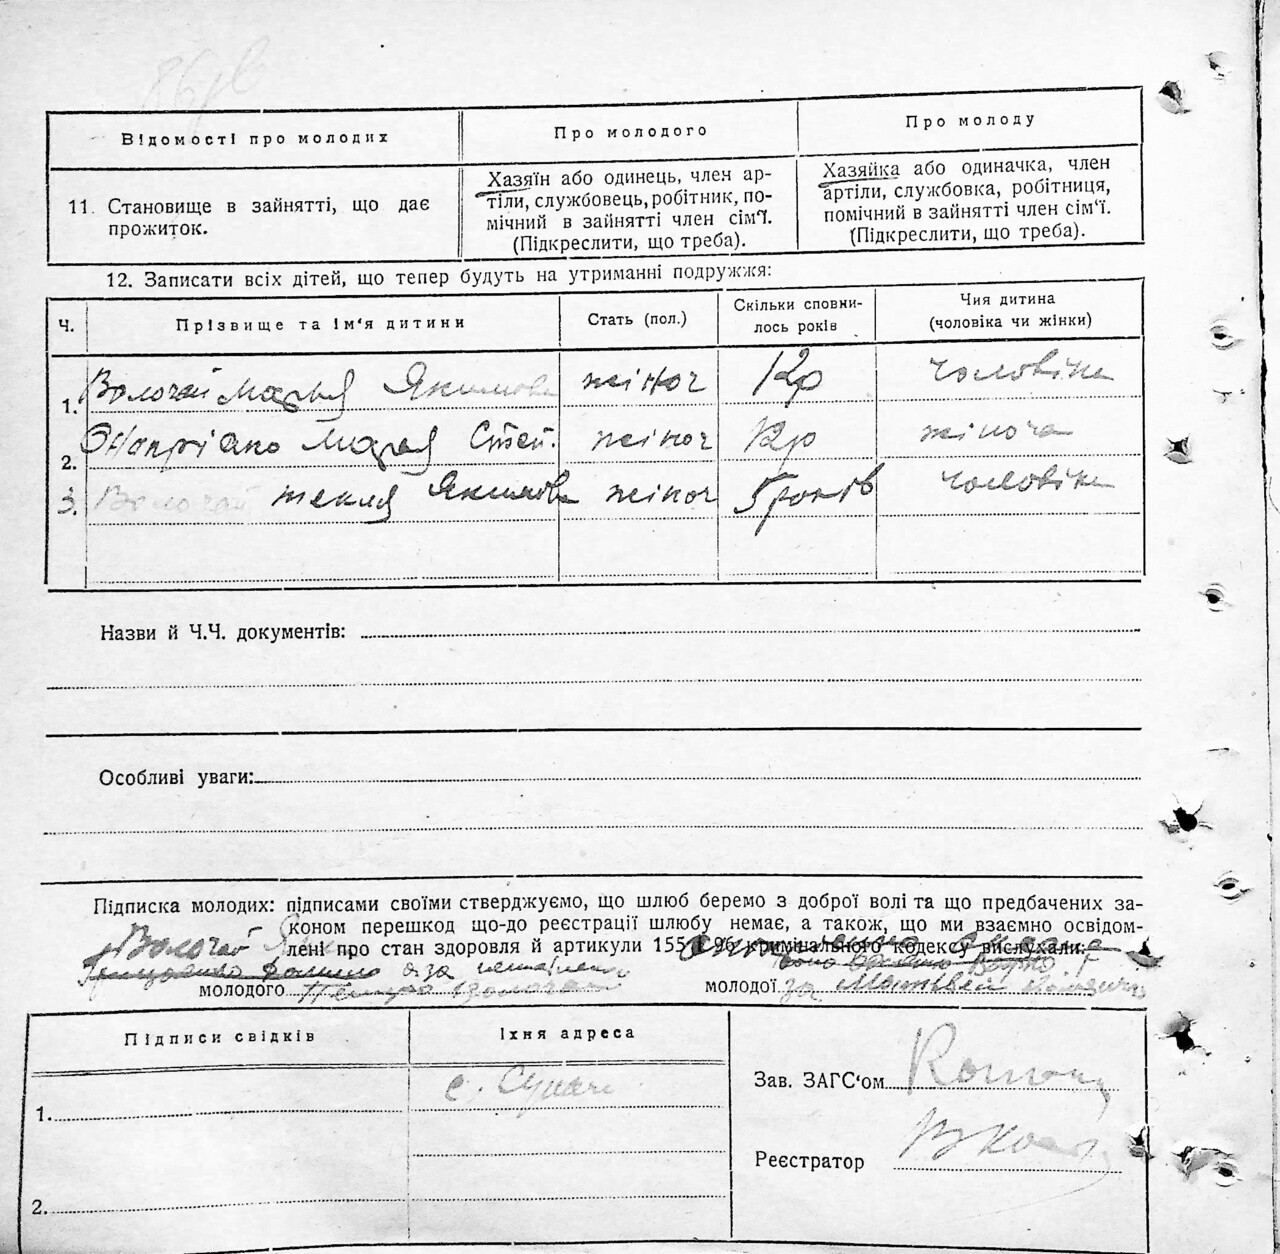 Відомості про молодих
Про молодого
Про молоду
11. Становище в зайнятті, що дає
прожиток.
Хазяїн або одинець, член ар-
тіли, службовець, робітник, по-
мічний в зайнятті член сім'ї.
(Підкреслити, що треба).
Хазяйка або одиначка, член
артіли, службовка, робітниця,
помічний в зайнятті член сім'ї.
(Підкреслити, що треба).
12. Записати всіх дітей, що тепер будуть на утриманні подружжя:
Ч.
Прізвище та ім'я дитини
Стать (пол.)
Скільки сповни-
лось років
Чия дитина
(чоловіка чи жінки)
1. Волочай Марья Якимова жіноч 12р чоловіка
2. Онапрієнко Мария Степ. жіноч 12р жіноча
3. Волочай Текля Якимова жіноч 5 років чоловіка
Назви й Ч.Ч. документів:
Особливі уваги:
Підписка молодих: підписами своїми стверджуємо, що шлюб беремо з доброї волі та що предбачених за-
коном перешкод що-до реєстрації шлюбу немає, а також, що ми взаємно освідом-
лені про стан здоровля й артикули 155 і 196 кримінального кодексу вислухали:
Волочай
молодого Петро Волочай
молодої за Матвей
Підписи свідків
Їхня адреса
1.
с.
2.
Зав. ЗАГС'ом
Реєстратор